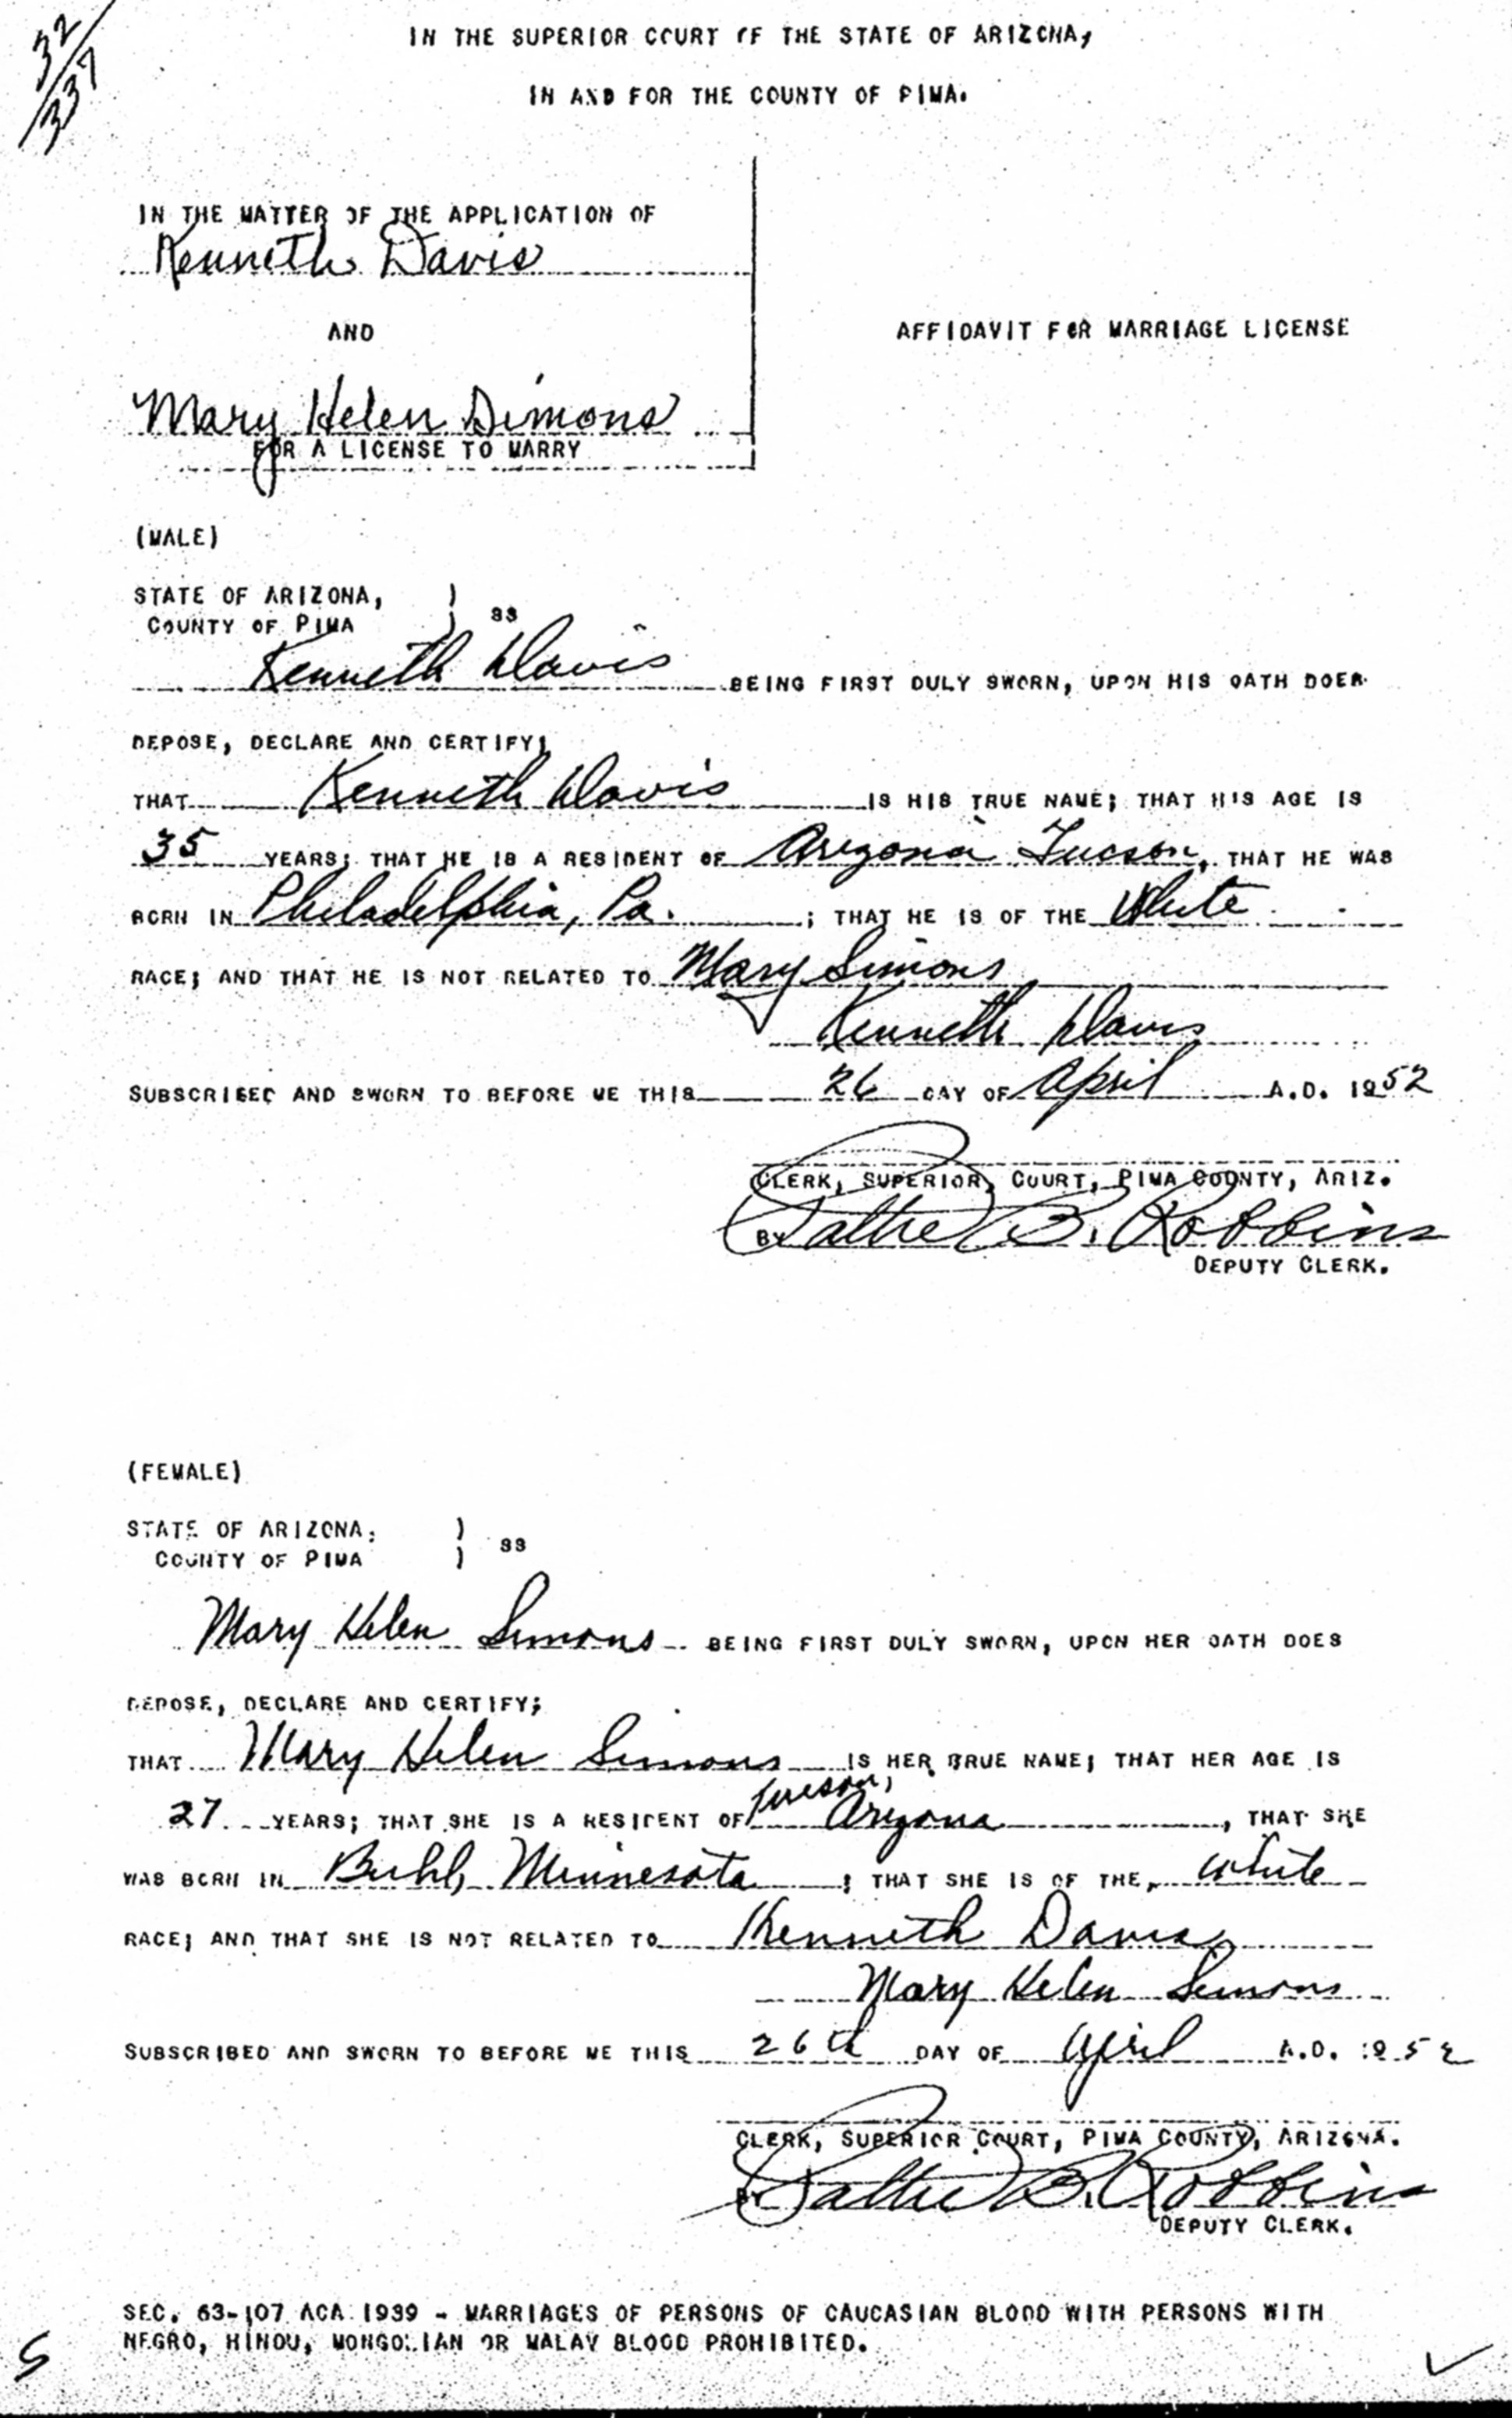 32/337
IN THE SUPERIOR COURT OF THE STATE OF ARIZONA,
IN AND FOR THE COUNTY OF PIMA.
IN THE MATTER OF THE APPLICATION OF
Kenneth Davis
AND
AFFIDAVIT FOR MARRIAGE LICENSE
Mary Helen Simons
FOR A LICENSE TO MARRY
(MALE)
STATE OF ARIZONA, )
COUNTY OF PIMA ) SS
Kenneth Davis BEING FIRST DULY SWORN, UPON HIS OATH DOES
DEPOSE, DECLARE AND CERTIFY;
THAT Kenneth Davis IS HIS TRUE NAME; THAT HIS AGE IS
35 YEARS; THAT HE IS A RESIDENT OF Arizona Tucson, THAT HE WAS
BORN IN Philadelphia, Pa. ; THAT HE IS OF THE White
RACE; AND THAT HE IS NOT RELATED TO Mary Simons
Kenneth Davis
SUBSCRIBED AND SWORN TO BEFORE ME THIS 26 DAY OF April A.D. 1952
CLERK, SUPERIOR COURT, PIMA COUNTY, ARIZ.
BY Sallie B. Robbins
DEPUTY CLERK.
(FEMALE)
STATE OF ARIZONA, )
COUNTY OF PIMA ) SS
Mary Helen Simons BEING FIRST DULY SWORN, UPON HER OATH DOES
DEPOSE, DECLARE AND CERTIFY;
THAT Mary Helen Simons IS HER TRUE NAME; THAT HER AGE IS
27 YEARS; THAT SHE IS A RESIDENT OF Tucson, Arizona, THAT SHE
WAS BORN IN Buhl, Minnesota ; THAT SHE IS OF THE, White
RACE; AND THAT SHE IS NOT RELATED TO Kenneth Davis
Mary Helen Simons
SUBSCRIBED AND SWORN TO BEFORE ME THIS 26th DAY OF April A.D. 1952
CLERK, SUPERIOR COURT, PIMA COUNTY, ARIZONA.
BY Sallie B. Robbins
DEPUTY CLERK.
SEC. 63-107 ACA 1939 - MARRIAGES OF PERSONS OF CAUCASIAN BLOOD WITH PERSONS WITH
NEGRO, HINDU, MONGOLIAN OR MALAY BLOOD PROHIBITED.